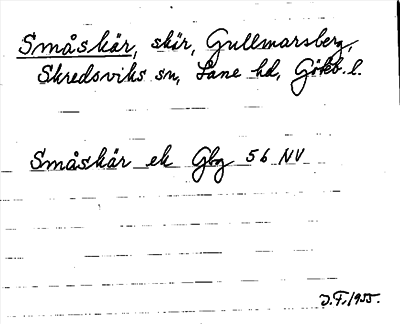 Småskär, skär, Gullmarsberg,
Skredsviks sn, Lane hd, Gökb. l.
Småskär ek Gbg 56 NV
J.F. 1955.